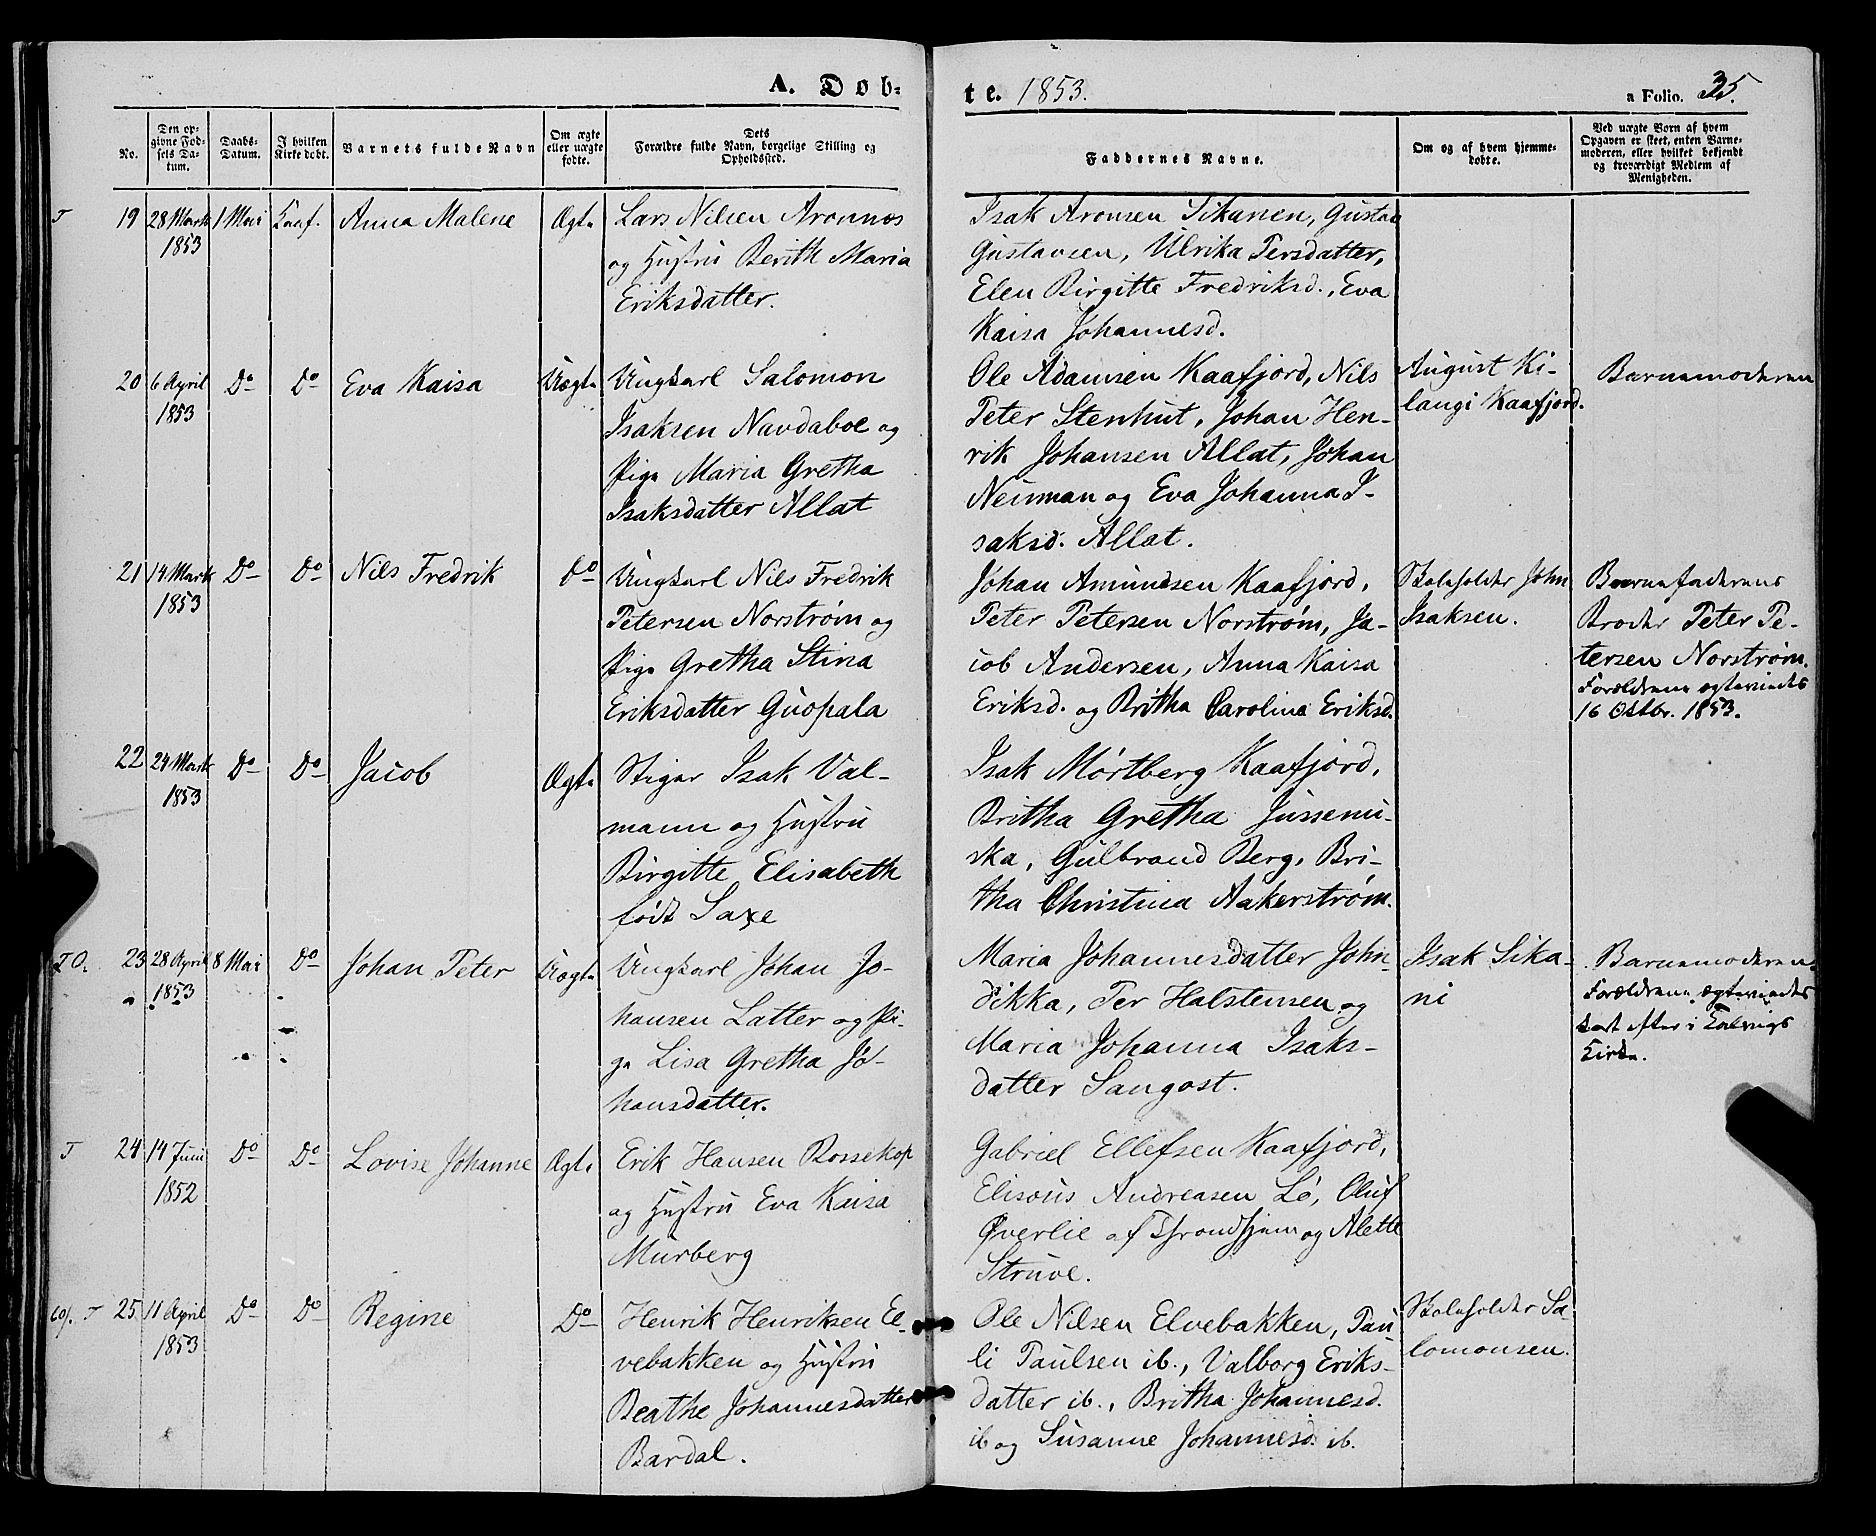 A. Døb-
te. 1853.
a Folio. 35.
No.
Den op-
givne Fød-
sels Da-
tum.
Daabs-
Datum.
I hvilken
Kirke døbt.
Barnets fulde Navn
Om ægte
eller uægte
fødte.
Dets
Forældre fulde Navn, borgelige Stilling og
Opholdssted.
Faddernes Navne.
Om og af hvem hjemme-
døbte.
Ved uægte Børn af hvem
Opgaven er skeet, enten Barne-
moderen, eller hvilket bekjendt
og troværdigt Medlem af
Menigheden.
T 19 28 Marts 1 Mai Kaaf. Anna Malene Ægte Lars Nilsen Aronnos
1853 og Hustru Berith Maria
Eriksdatter.
Isak Aronsen Sikanen, Gustav
Gustavsen, Ulrika Persdatter,
Elen Birgitte Fredriksd., Eva
Kaisa Johannesd.
20 6 April Do Do Eva Kaisa Uægte Ungkarl Salomon
1853 Isaksen Navdaboe og
Pige Maria Gretha
Isaksdatter Allat
Ole Adamsen Kaafjord, Nils
Peter Stenhut, Johan Hen-
rik Johansen Allat, Johan
Neuman og Eva Johanna I-
saksd. Allat.
August Ki-
langi Kaafjord.
Barnemoderen
21 14 Marts Do Do Nils Fredrik Do Ungkarl Nils Fredrik
1853 Petersen Norstrøm og
Pige Gretha Stina
Eriksdatter Guopala
Johan Amundsen Kaafjord,
Peter Petersen Norstrøm, Ja-
cob Andersen, Anna Kaisa
Eriksd. og Britha Carolina Eriksd.
Skoleholder John
Isaksen.
Barnefaderens
Broder Peter Pe-
tersen Norstrøm.
Forældrene ægteviedes
16 Octbr. 1853.
22 24 Marts Do Do Jacob Ægte Stiger Isak Val-
1853 mann og Hustru
Birgitte Elisabeth
født Saxe
Isak Mørtberg Kaafjord,
Britha Gretha Jussenu-
ska, Gulbrand Berg, Bri-
tha Christina Aakerstrøm.
T O. 23 28 April 8 Mai Do Johan Peter Uægte Ungkarl Johan Jo-
1853 hansen Latter og Pi-
ge Lisa Gretha Jo-
hansdatter.
Maria Johannesdatter John-
dikka, Per Halstensen og
Maria Johanna Isaks-
datter Sangost.
Isak Sika-
ni
Barnemoderen.
Forældrene ægteviedes
kort efter i Talvigs
Kirke.
T 24 14 Juni Do Do Lovise Johanne Ægte Erik Hansen Bossekop
1852 og Hustru Eva Kaisa
Murberg
Gabriel Ellefsen Kaafjord,
Elisæus Andreasen Lø, Oluf
Øverlie af Throndhjem og Alette
Struve.
T 25 11 April Do Do Regine Do Henrik Henriksen El-
1853 vebakken og Hustru
Beathe Johannesdatter
Bardal.
Ole Nilsen Elvebakken, Pau-
li Paulsen ib., Valborg Eriks-
datter ib., Britha Johannesd.
ib og Susanne Johannesd. ib.
Skoleholder Sa-
lomonsen.